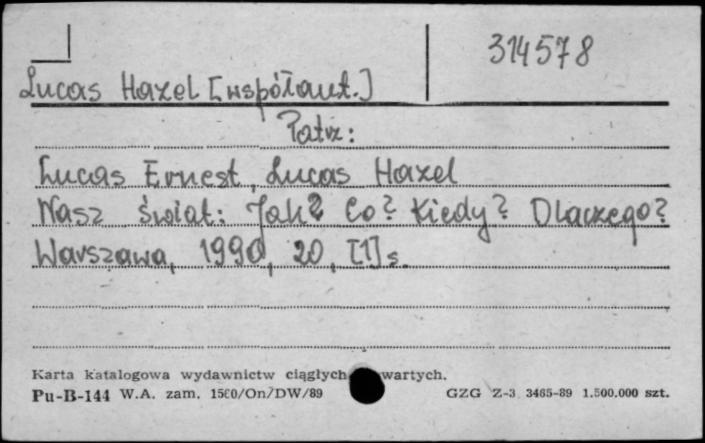 314578
Lucas Hazel [współaut.]
Patrz:
Lucas Ernest, Lucas Hazel
Nasz świat: Jak? Co? Kiedy? Dlaczego?
Warszawa, 1990, 20, [1] s.
Karta katalogowa wydawnictw ciągłych wartych.
Pu-B-144 W.A. zam. 1560/On/DW/89 GZG Z-3 3465-89 1.500.000 szt.